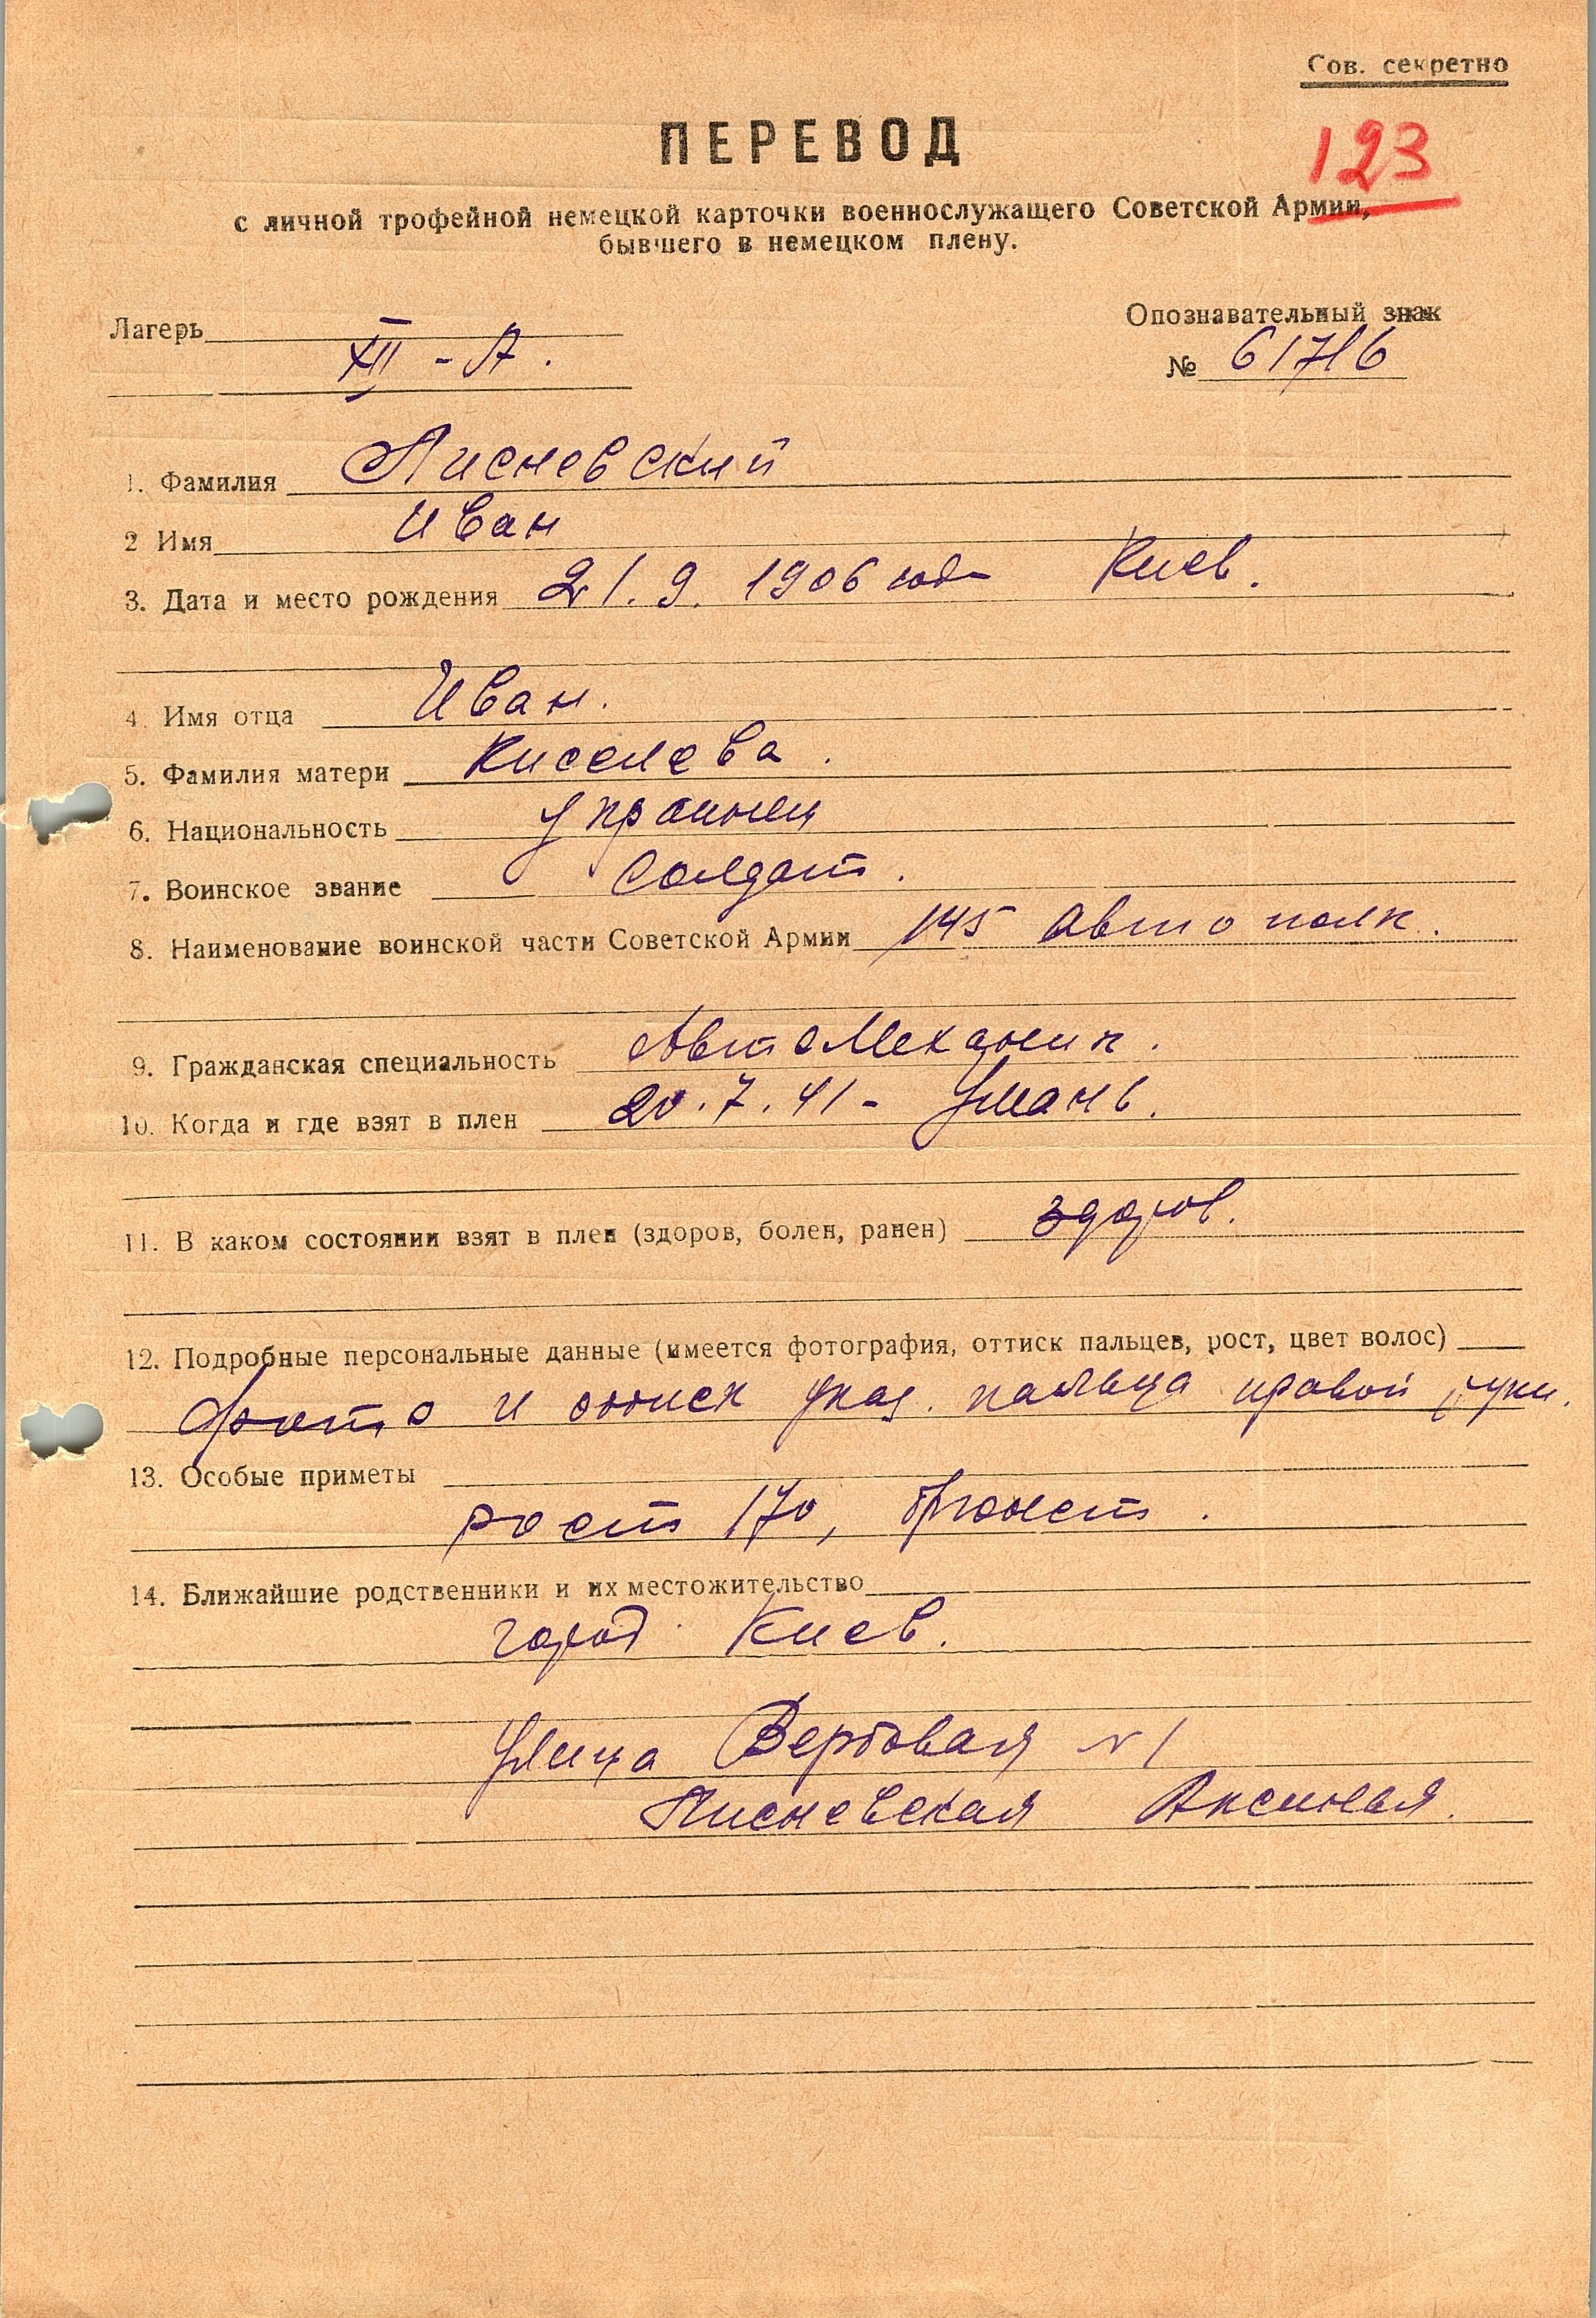 Сов. секретно
ПЕРЕВОД
123
с личной трофейной немецкой карточки военнослужащего Советской Армии,
бывшего в немецком плену.
Лагерь XII - А.
Опознавательный знак
№ 61716
1. Фамилия Лисневский
2 Имя Иван
3. Дата и место рождения 21. 9. 1906 года Киев.
4. Имя отца Иван.
5. Фамилия матери Киселева.
6. Национальность Украинец
7. Воинское звание Солдат.
8. Наименование воинской части Советской Армии 145 Авто полк.
9. Гражданская специальность АвтоМеханик.
10. Когда и где взят в плен 20. 7. 41 - Умань.
11. В каком состоянии взят в плен (здоров, болен, ранен) здоров.
12. Подробные персональные данные (имеется фотография, оттиск пальцев, рост, цвет волос)
Фото и оттиск указ. пальца правой руки.
13. Особые приметы
рост 170, брюнет.
14. Ближайшие родственники и их местожительство
город Киев.
Улица Вербовая N 1
Лисневская